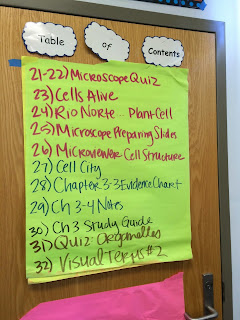 Table of Contents
21-22) Microscope Quiz
23) Cells Alive
24) Rio Norte... Plant Cell
25) Microscope Preparing Slides
26) Microviewer Cell Structure
27) Cell City
28) Chapter 3-3 Evidence Chart
29) Ch 3-4 Notes
30) Ch 3 Study Guide
31) Quiz: Organelles
32) Visual Terms #2